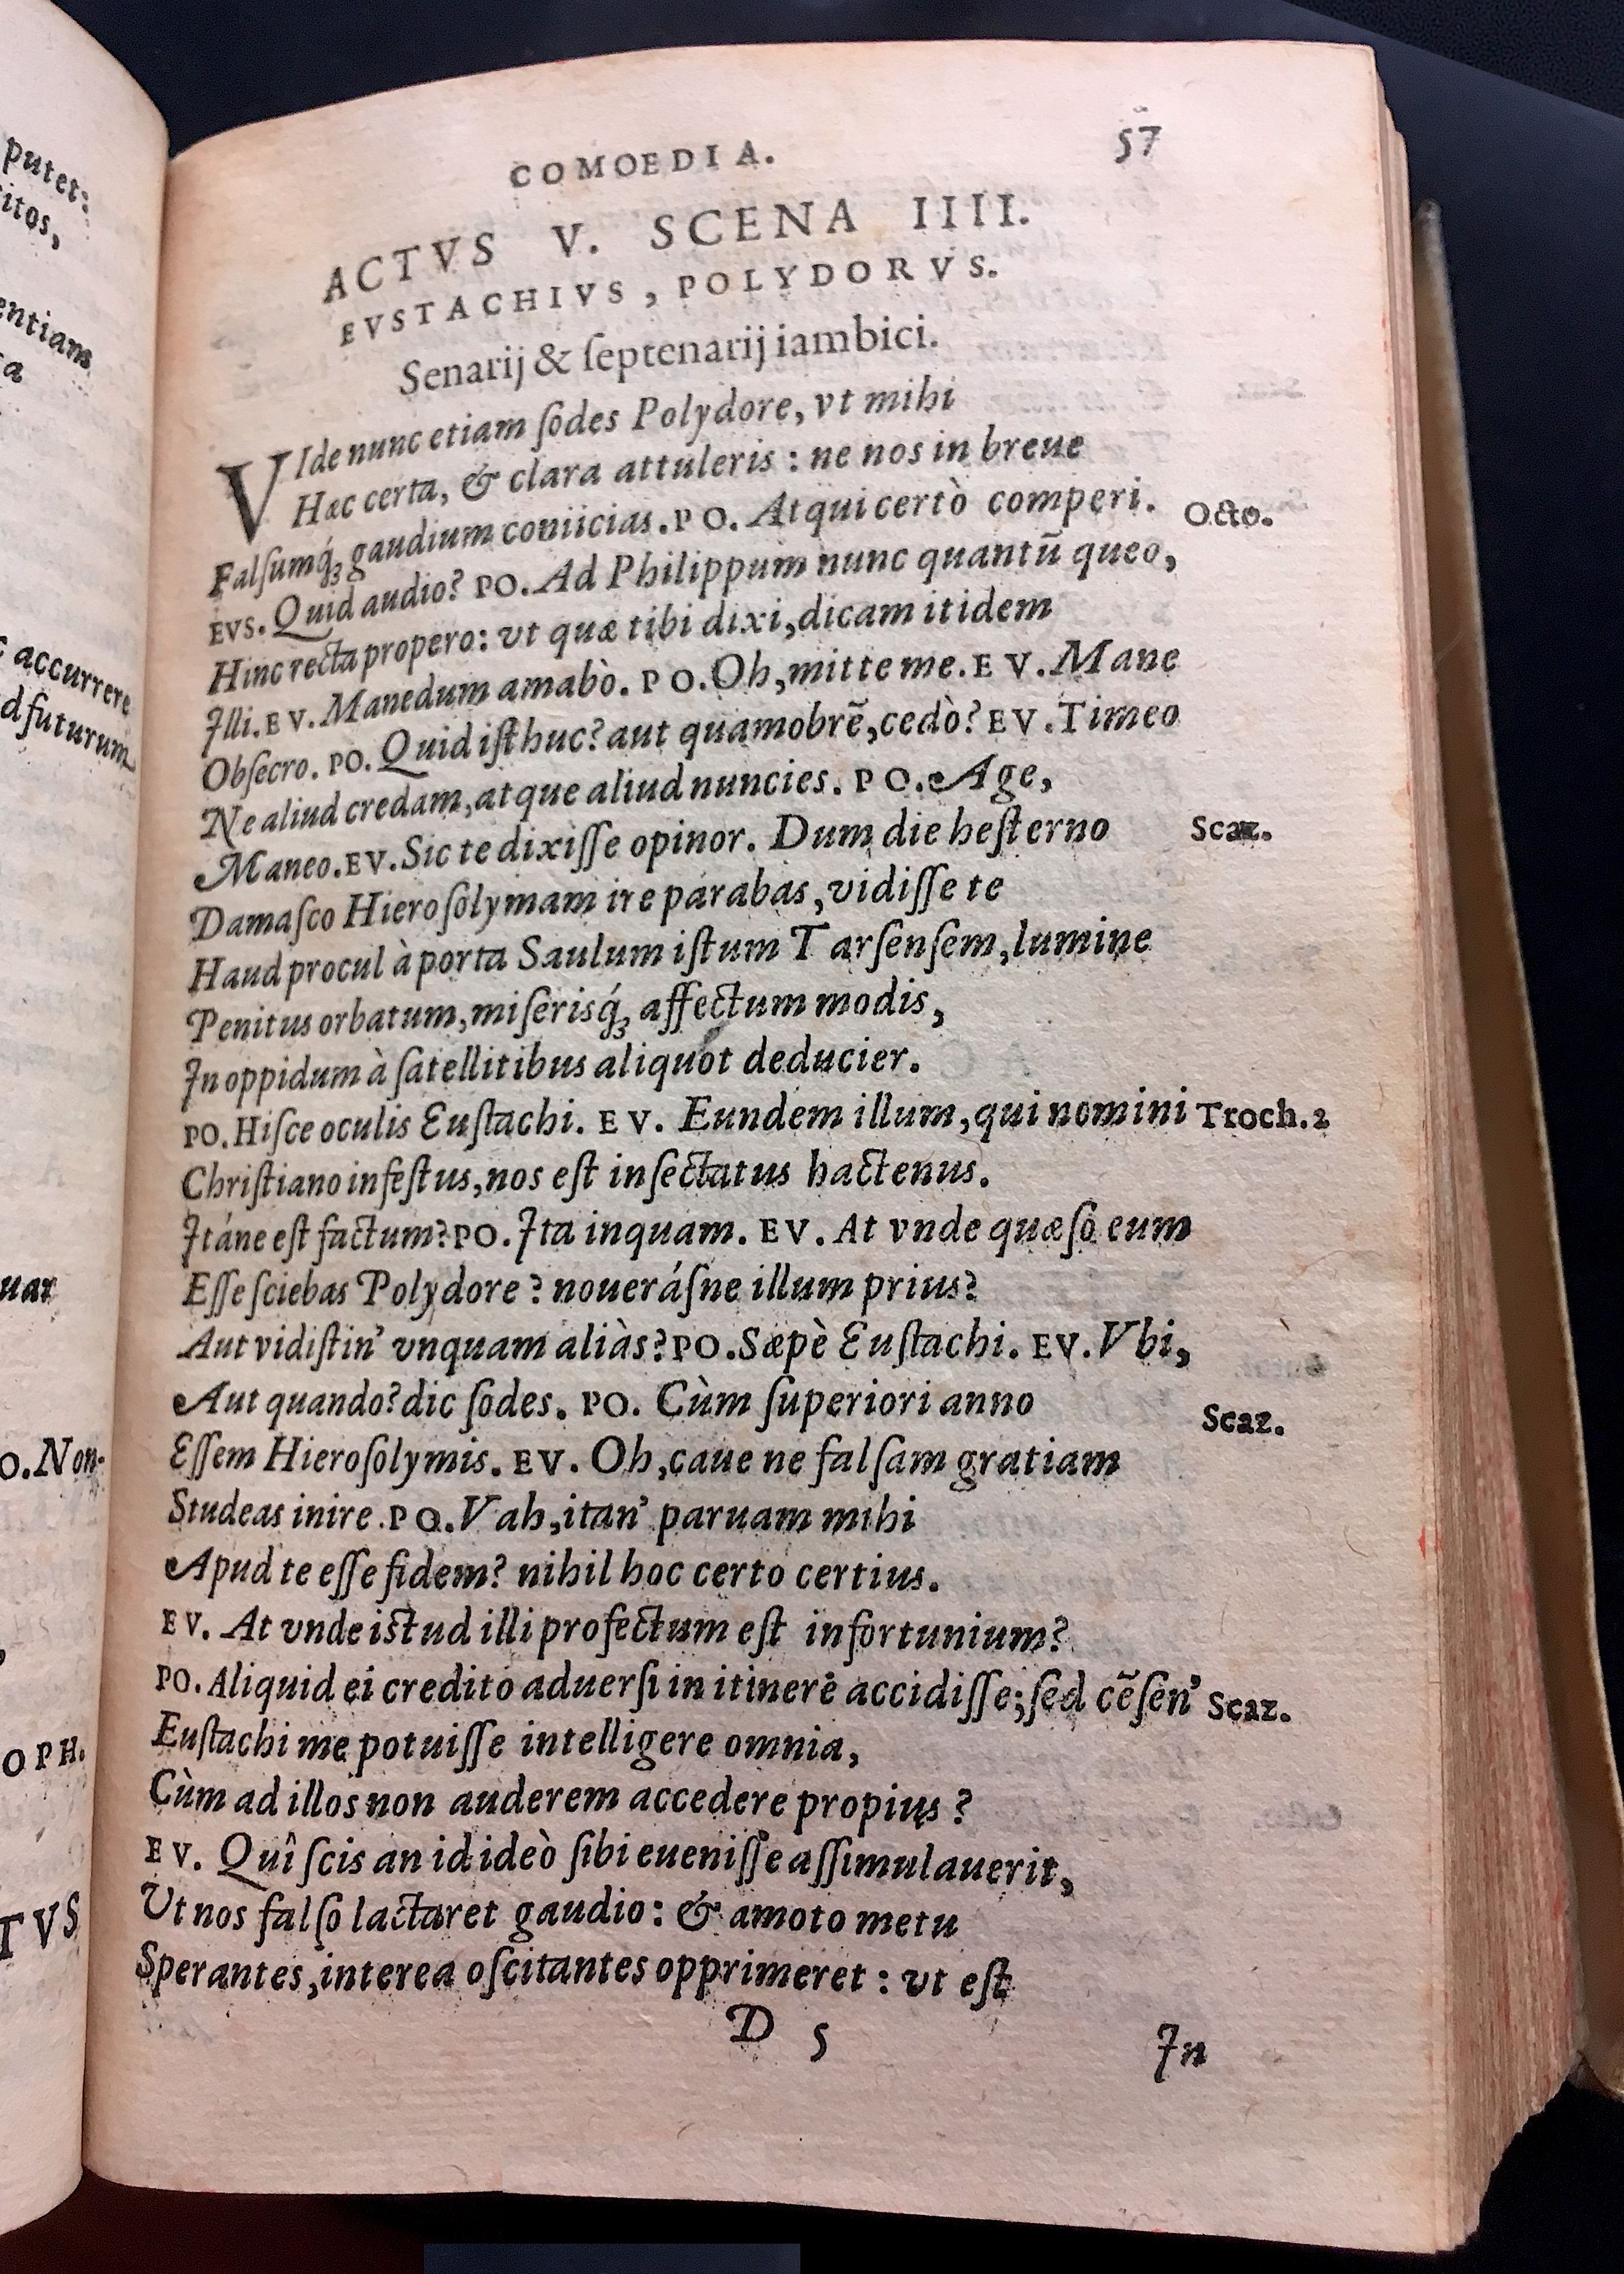 putet:
itos,
entiam
ta
accurrere
d futurum
uar
O. Non-
OPH.
TVS
COMOEDIA.
57
ACTVS V. SCENA IIII.
EVSTACHIVS, POLYDORVS.
Senarij & ſeptenarij iambici.
VIde nunc etiam ſodes Polydore, vt mihi
Hæc certa, & clara attuleris : ne nos in breue
Falſumq́ꝫ gaudium coniicias. PO. Atqui certò comperi. Octo.
EVS. Quid audio? PO. Ad Philippum nunc quantū queo,
Hinc recta propero: vt quæ tibi dixi, dicam itidem
Illi. EV. Manedum amabò. PO. Oh, mitte me. EV. Mane
Obſecro. PO. Quid iſthuc? aut quamobrē, cedò? EV. Timeo
Ne aliud credam, atque aliud nuncies. PO. Age,
Maneo. EV. Sic te dixiſſe opinor. Dum die heſterno Scaz.
Damaſco Hieroſolymam ire parabas, vidiſſe te
Haud procul à porta Saulum iſtum Tarſenſem, lumine
Penitus orbatum, miſerisq́ꝫ affectum modis,
In oppidum à ſatellitibus aliquot deducier.
PO. Hiſce oculis Euſtachi. EV. Eundem illum, qui nomini Troch.2
Chriſtiano infeſtus, nos eſt inſectatus hactenus.
Itáne eſt factum? PO. Ita inquam. EV. At vnde quæſo eum
Eſſe ſciebas Polydore? noueráſne illum prius?
Aut vidiſtin' vnquam aliàs? PO. Sæpè Euſtachi. EV. Vbi,
Aut quando? dic ſodes. PO. Cùm ſuperiori anno Scaz.
Eſſem Hieroſolymis. EV. Oh, caue ne falſam gratiam
Studeas inire. PO. Vah, itan' paruam mihi
Apud te eſſe fidem? nihil hoc certo certius.
EV. At vnde iſtud illi profectum eſt infortunium?
PO. Aliquid ei credito aduerſi in itinere accidiſſe; ſed cēſen' Scaz.
Euſtachi me potuiſſe intelligere omnia,
Cùm ad illos non auderem accedere propius?
EV. Quî ſcis an id ideò ſibi eueniſſe aſſimulauerit,
Vt nos falſo lactaret gaudio: & amoto metu
Sperantes, interea oſcitantes opprimeret : vt eſt
D 5
In